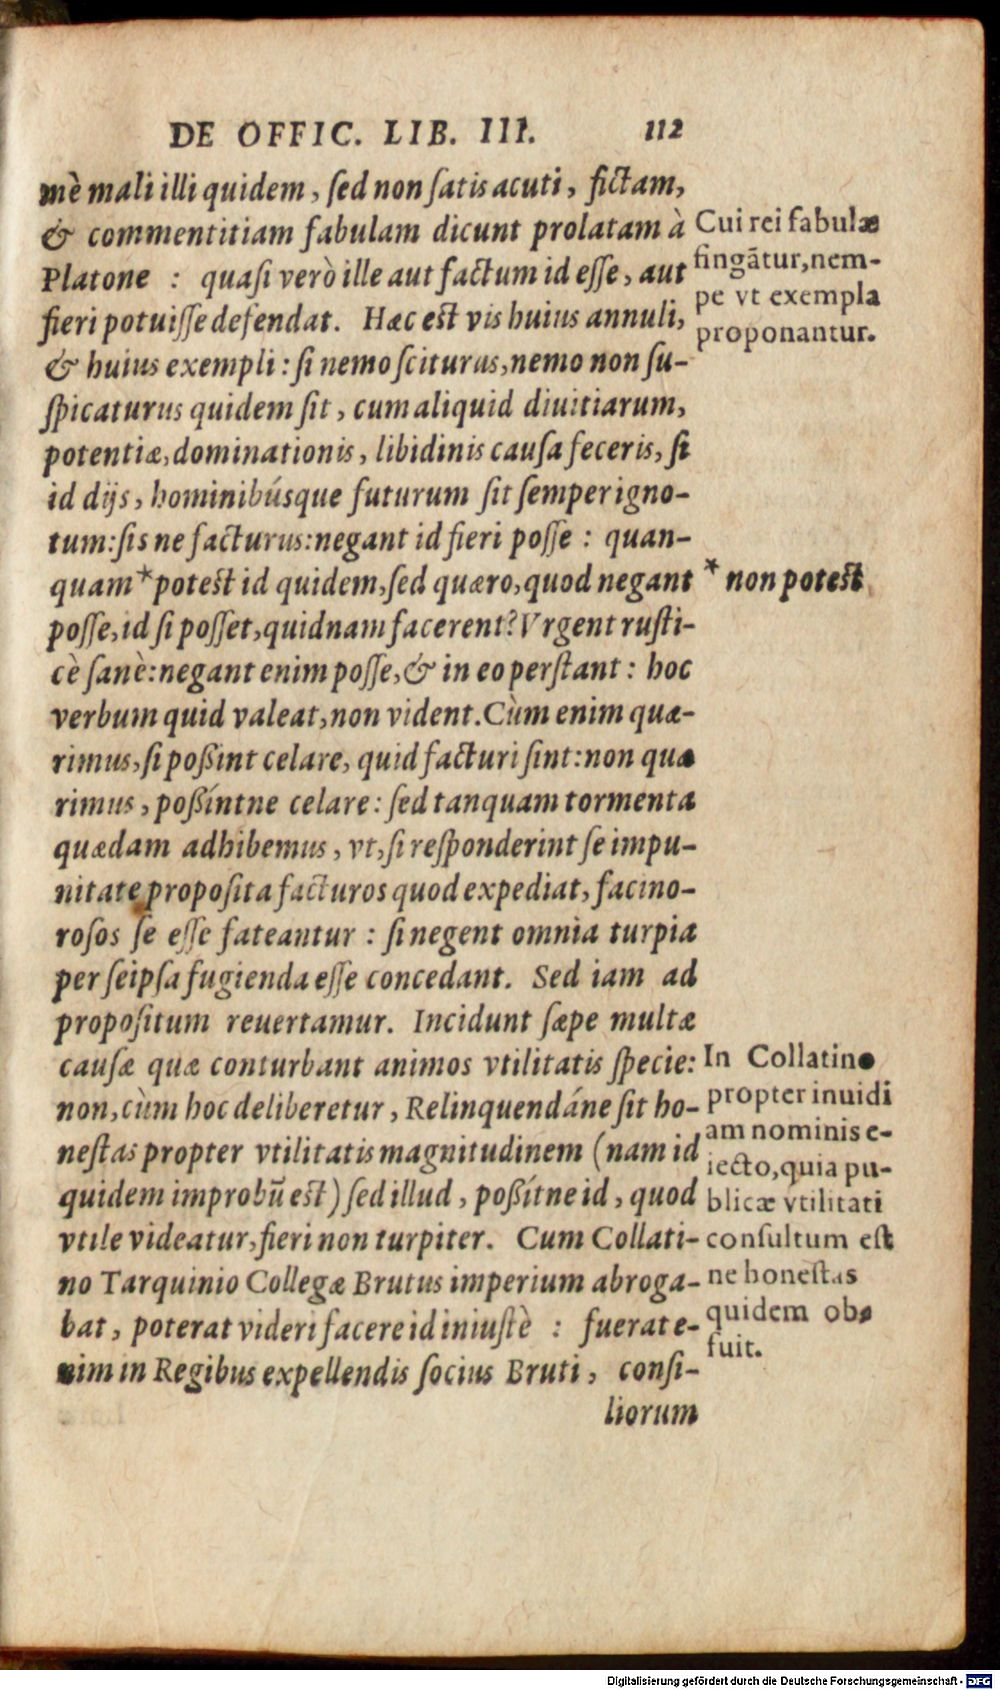 DE OFFIC. LIB. III. 112
mè mali illi quidem, ſed non ſatis acuti, fictam,
& commentitiam fabulam dicunt prolatam à
Platone : quaſi verò ille aut factum id eſſe, aut
fieri potuiſſe defendat. Hæc eſt vis huius annuli,
& huius exempli: ſi nemo ſciturus, nemo non ſu-
ſpicaturus quidem ſit, cum aliquid diuitiarum,
potentiæ, dominationis, libidinis cauſa feceris, ſi
id dijs, hominibúsque futurum ſit ſemper igno-
tum: ſis ne facturus: negant id fieri poſſe : quan-
quam * poteſt id quidem, ſed quæro, quod negant
poſſe, id ſi poſſet, quidnam facerent? Vrgent ruſti-
cè ſanè: negant enim poſſe, & in eo perſtant: hoc
verbum quid valeat, non vident. Cùm enim quæ-
rimus, ſi poßint celare, quid facturi ſint: non quæ
rimus, poßíntne celare: ſed tanquam tormenta
quædam adhibemus, vt, ſi reſponderint ſe impu-
nitate propoſita facturos quod expediat, facino-
roſos ſe eſſe fateantur : ſi negent omnia turpia
per ſeipſa fugienda eſſe concedant. Sed iam ad
propoſitum reuertamur. Incidunt ſæpe multæ
cauſæ quæ conturbant animos vtilitatis ſpecie:
non, cùm hoc deliberetur, Relinquendáne ſit ho-
neſtas propter vtilitatis magnitudinem (nam id
quidem improbũ eſt) ſed illud, poßítne id, quod
vtile videatur, fieri non turpiter. Cum Collati-
no Tarquinio Collegæ Brutus imperium abroga-
bat, poterat videri facere id iniuſtè : fuerat e-
nim in Regibus expellendis ſocius Bruti, conſi-
liorum
Cui rei fabulæ
fingātur, nem-
pe vt exempla
proponantur.
* non poteſt
In Collatino
propter inuidi
am nominis e-
iecto, quia pu-
blicæ vtilitati
conſultum eſt
ne honeſtas
quidem obs
fuit.
Digitalisierung gefördert durch die Deutsche Forschungsgemeinschaft - DFG